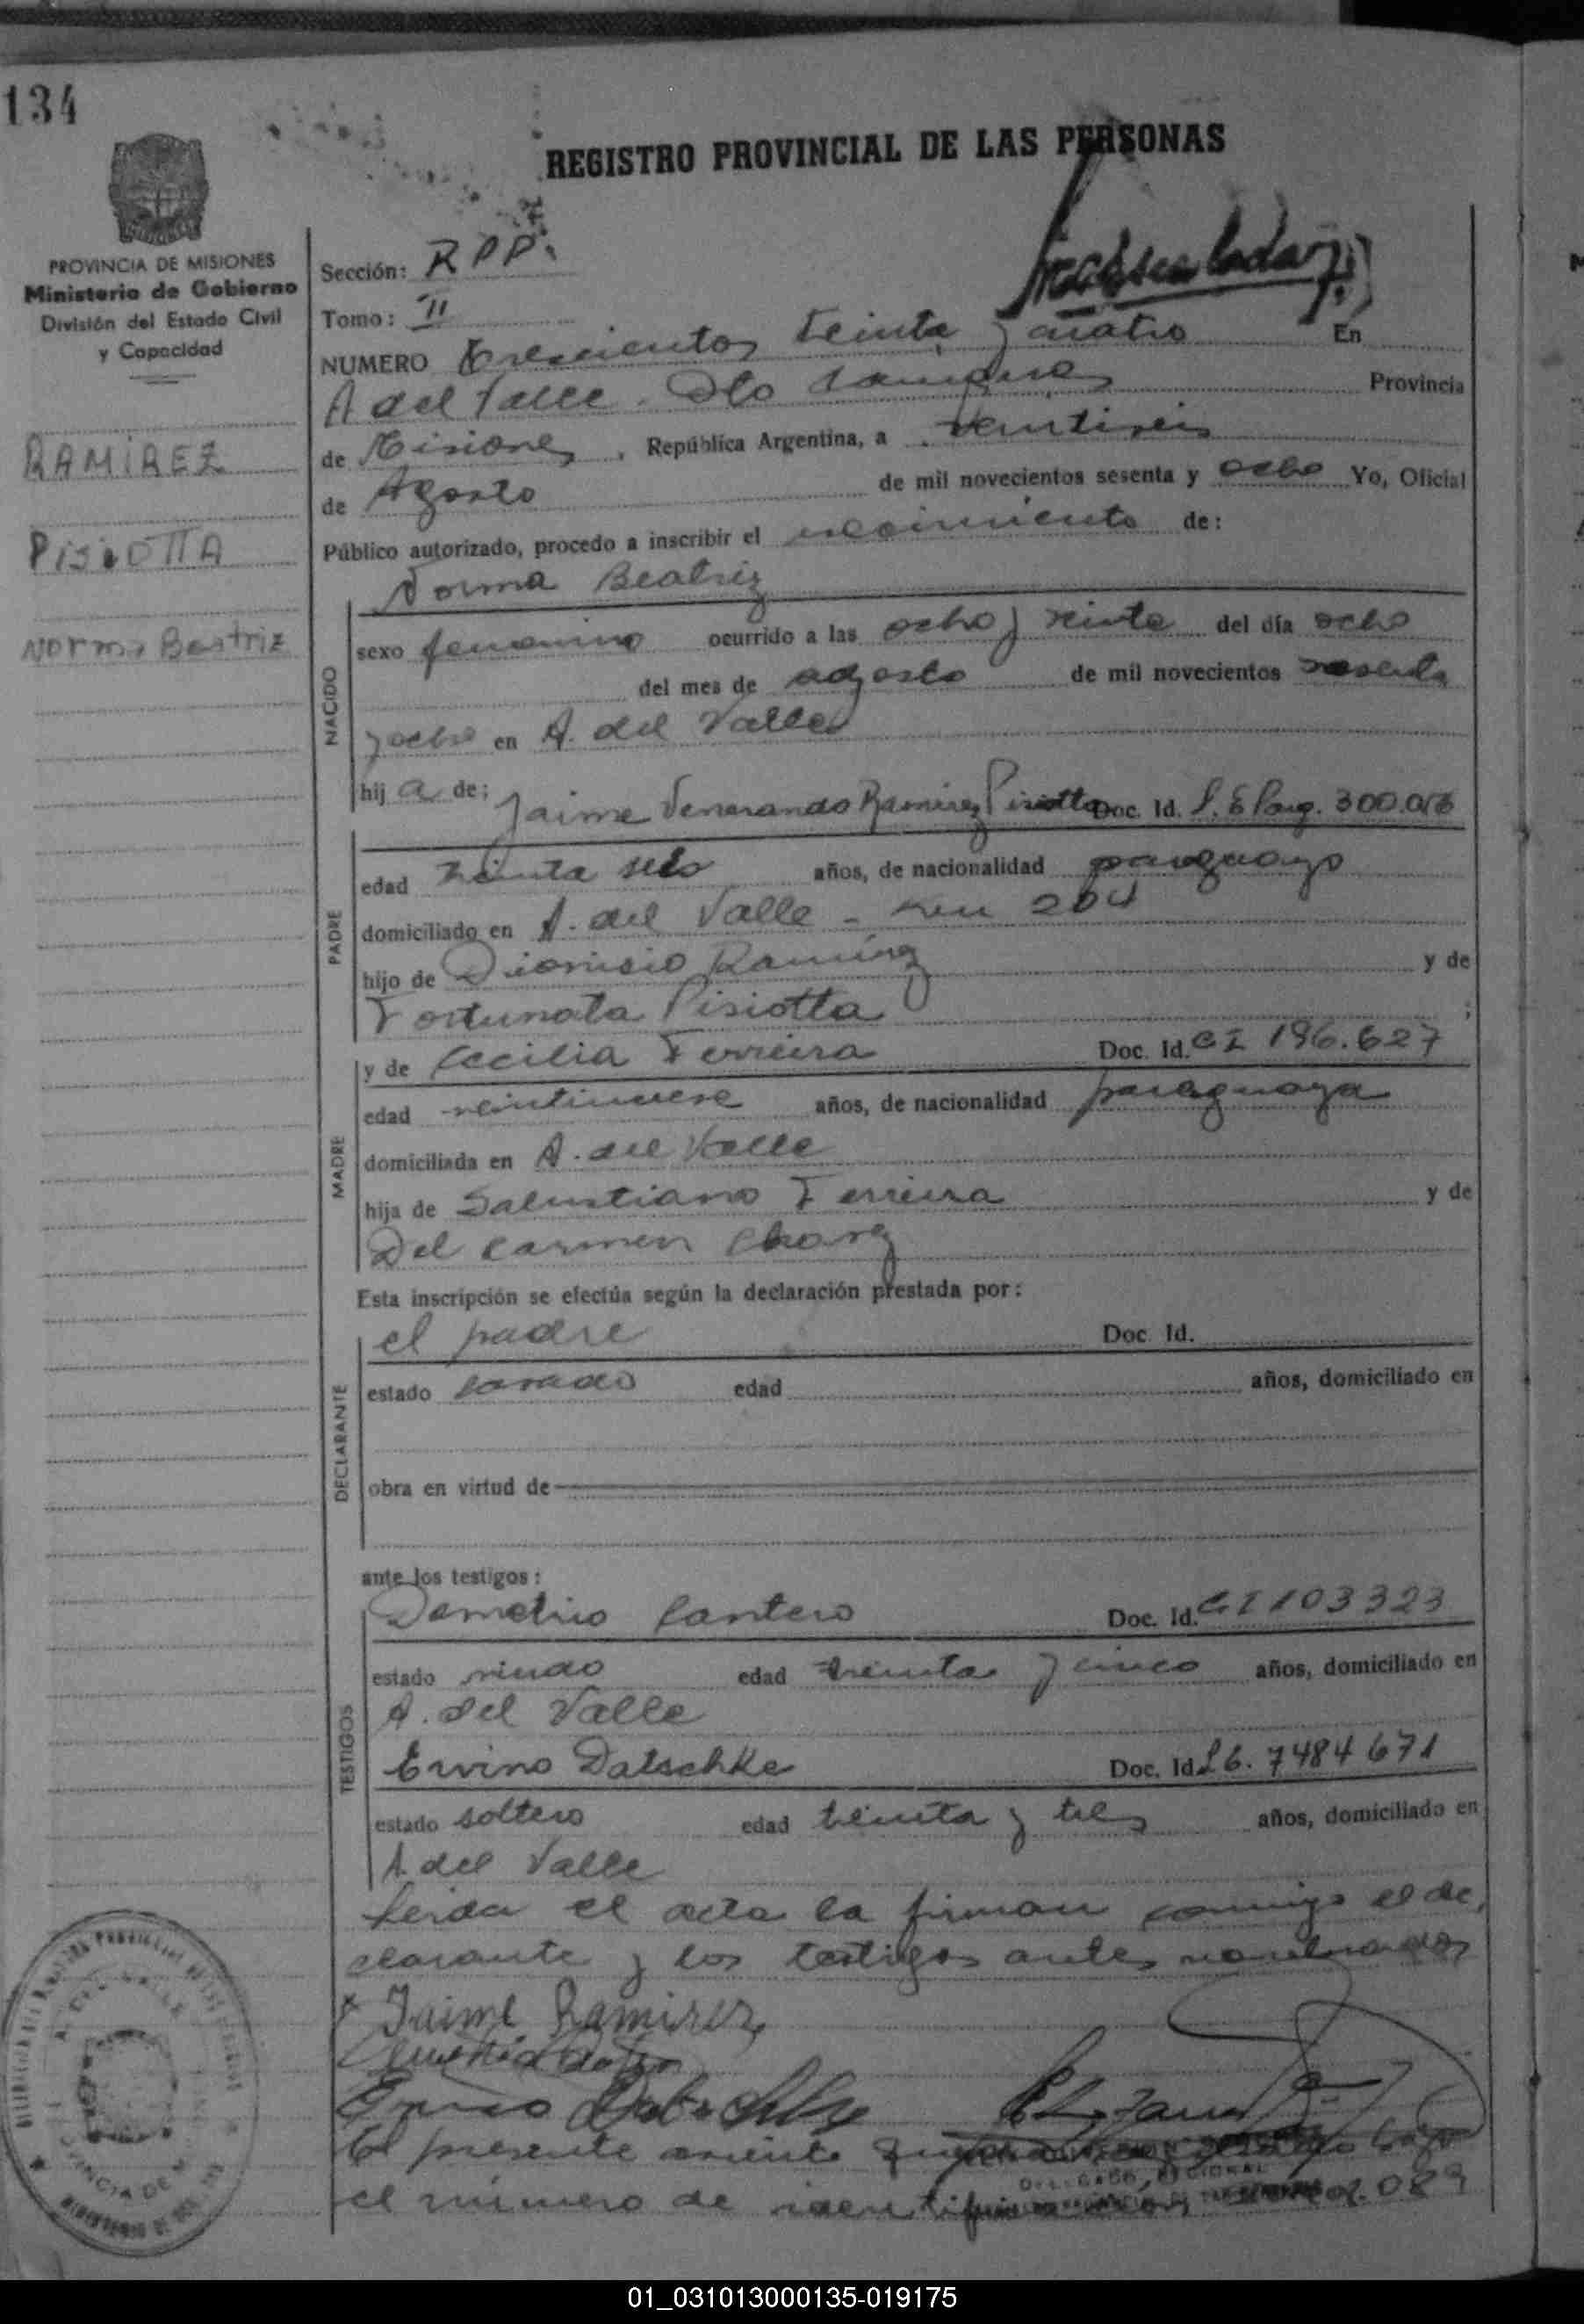 134
REGISTRO PROVINCIAL DE LAS PERSONAS
PROVINCIA DE MISIONES
Ministerio de Gobierno
División del Estado Civil
y Capacidad
RAMIREZ
PISIOTTA
Norma Beatriz
Sección: RPP.
Tomo: II
NUMERO trescientos treinta y cuatro En
A del Valle. Dto Cainguas Provincia
de Misiones, República Argentina, a veintiseis
de Agosto de mil novecientos sesenta y ocho Yo, Oficial
Público autorizado, procedo a inscribir el nacimiento de:
Norma Beatriz
NACIDO
sexo femenino ocurrido a las ocho y veinte del día ocho
del mes de agosto de mil novecientos sesenta
y ocho en A. del Valle
hij a de: Jaime Venerando Ramirez Pisiotta Doc. Id.
PADRE
edad treinta seis años, de nacionalidad paraguayo
domiciliado en A. del Valle - km 204
hijo de Dionisio Ramírez y de
Fortunata Pisiotta ;
MADRE
y de Cecilia Ferreira Doc. Id. CI 196.627
edad veintinueve años, de nacionalidad paraguaya
domiciliada en A. del Valle
hija de Salustiano Ferreira y de
Del Carmen
Esta inscripción se efectúa según la declaración prestada por:
DECLARANTE
el padre Doc. Id.
estado casado edad años, domiciliado en
obra en virtud de
ante los testigos:
TESTIGOS
Demetrio Cantero Doc. Id. CI 103323
estado viudo edad treinta y cinco años, domiciliado en
A. del Valle
Ervino Datschke Doc. Id. 7484671
estado soltero edad treinta y tres años, domiciliado en
A del Valle
Leida el acta la firman conmigo el de
clarante y los testigos antes nombrados
Jaime Ramirez
El presente asiento bajo
el número de 089
01_031013000135-019175